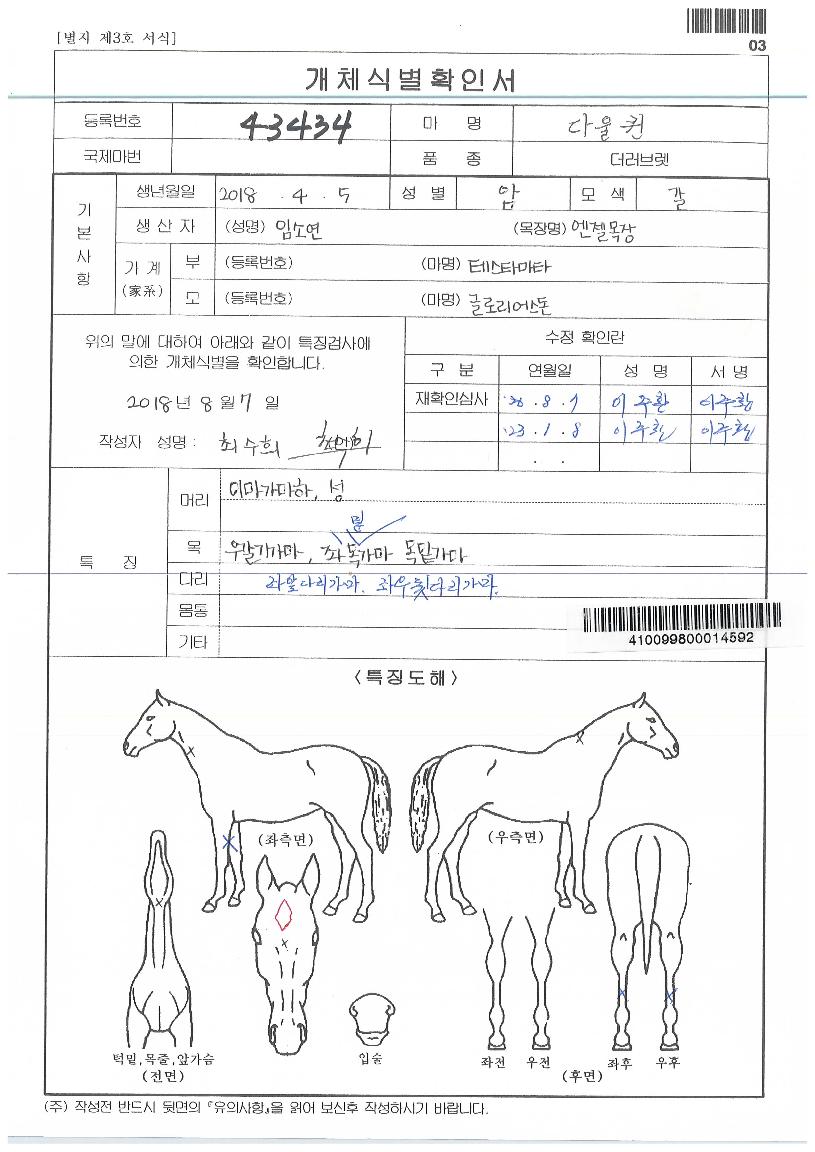 [별지 제3호 서식]
03
개체식별확인서
등록번호 43434 마 명 다울퀸
국제마번 품 종 더러브렛
기본사항 생년월일 2018 . 4 . 5 성 별 암 모 색 갈
생 산 자 (성명) 임소연 (목장명) 엔젤목장
기 계 (家系) 부 (등록번호) (마명) 테스타마타
모 (등록번호) (마명) 글로리어스돈
위의 말에 대하여 아래와 같이 특징검사에
의한 개체식별을 확인합니다.
2018년 8월 7일
작성자 성명 : 최수희
수정 확인란
구 분 연월일 성 명 서 명
재확인심사 .8.7 이주환 이주환
'23.1.8 이주환 이주환
. .
특 징
머리 이마가마하, 성
목 우갈기가마, 좌목가마 목밑가마
다리 좌앞다리가마. 좌우뒷다리가마.
몸통
기타
410099800014592
<특징도해>
(좌측면) (우측면)
턱밑,목줄,앞가슴
(전면)
입술
좌전 우전 좌후 우후
(후면)
(주) 작성전 반드시 뒷면의 『유의사항』을 읽어 보신후 작성하시기 바랍니다.